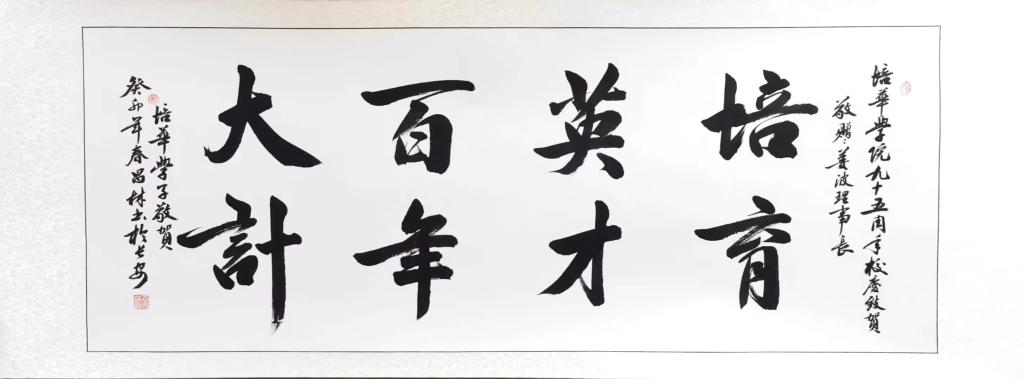 培華學院九十五周年校慶致賀
敬贈姜波理事長
培育
英才
百年
大計
培華學子敬賀
癸卯年春昌林書於長安